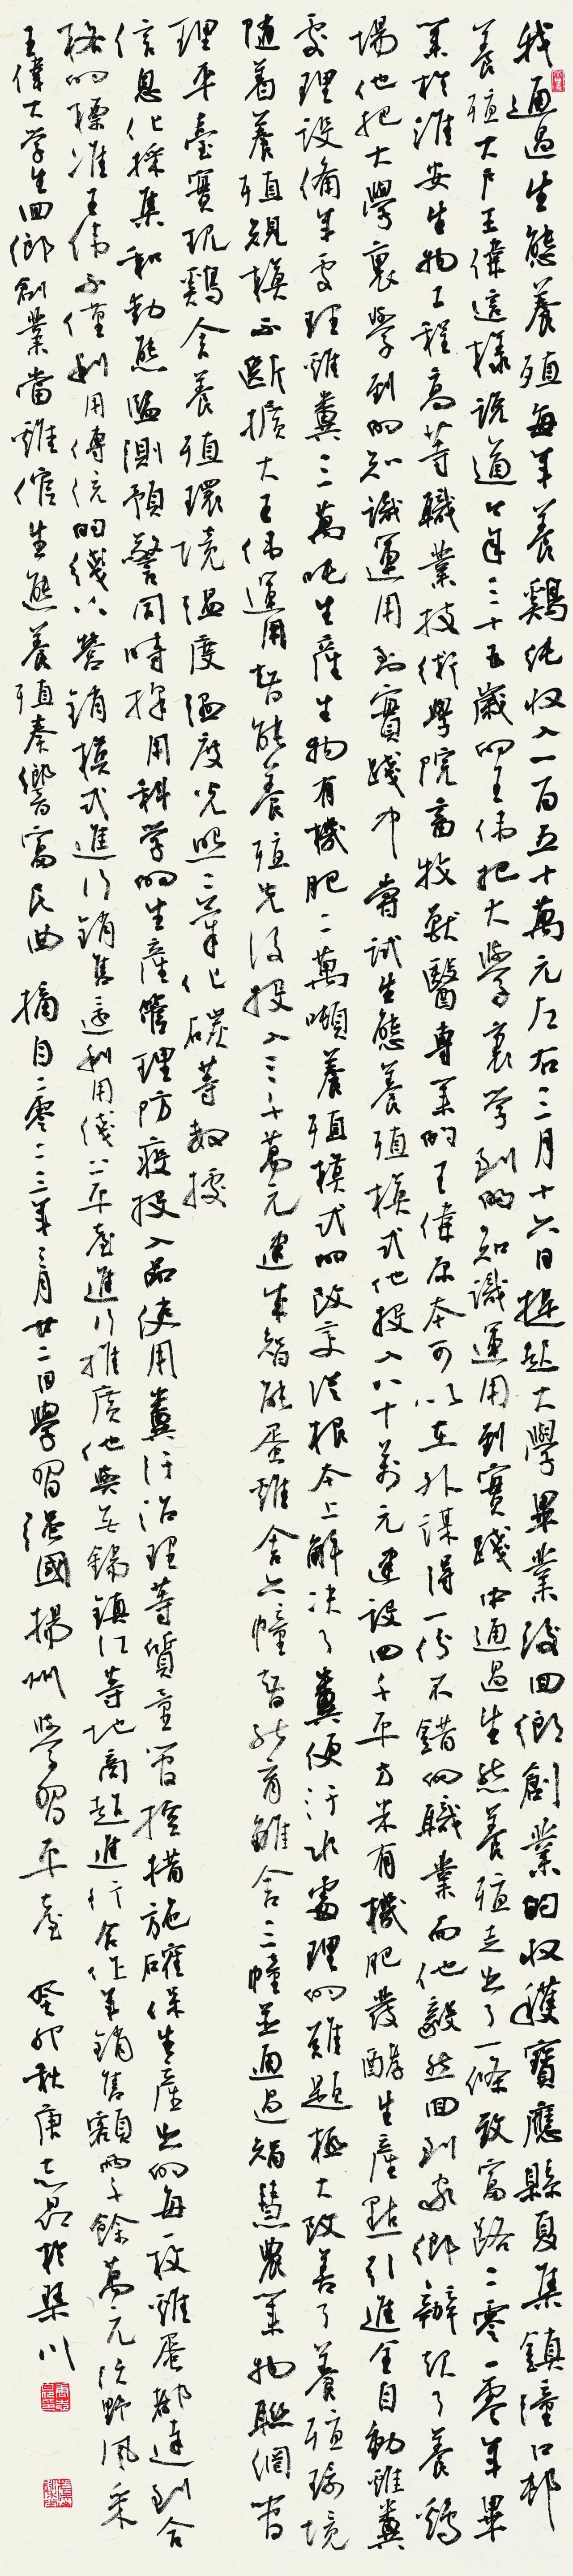 我通過生態養殖每年養鷄純收入一百五十萬元左右三月十六日提起大學畢業後回鄉創業的收穫寶應縣夏集鎮潼口邨
養殖大户王偉這樣説道今年三十五歲的王偉把大學裏学到的知識運用到實踐中通過生態養殖走出了一條致富路二零一零年畢
業於淮安生物工程高等職業技術學院畜牧獸醫專業的王偉原本可以在外謀得一份不錯的職業而他毅然回到家鄉辦起了養鷄
場他把大學裏學到的知識運用到實踐中嘗試生態養殖模式他投入八十萬元建設四千平方米有機肥發酵生產點引進全自動雞糞
處理設備年處理雞糞三萬吨生産生物有機肥二萬噸養殖模式的改变從根本上解决了糞便汙水處理的難題極大改善了養殖環境
随着養殖規模不斷擴大王偉運用智能養殖先後投入三千萬元建成智能蛋雞舍六幢智能育雛舍三幢並通過智慧農業物聯網管
理平臺實現鷄舍養殖環境温度濕度光照二氧化碳等數據
信息化採集和動態監測預警同時採用科学的生產管理防疫投入品使用糞汙治理等質量管控措施確保生產出的每一枚雞蛋都達到合
格的標准王偉不僅利用傳統的綫下營銷模式進行銷售還利用綫上平臺進行推廣他與無錫鎮江等地商超進行合作年銷售額兩千餘萬元沃野風采
王偉大学生回鄉創業當雞倌生態養殖奏響富民曲 摘自二零二三年三月廿二日學習强國揚州學習平臺 癸卯秋唐志昂於琴川